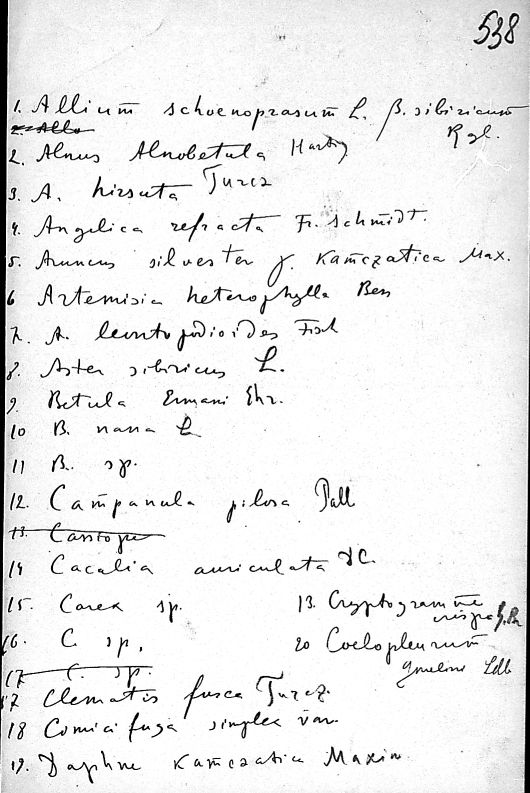 538
1. Allium schoenoprasum L. β. sibiricum
Rgl.
2. Allo
2. Alnus Alnobetula Hartig
3. A. hirsuta Turcz
4. Angelica refracta Fr. Schmidt.
5. Aruncus silvester γ. Kamczatica Max.
6 Artemisia heterophylla Bess
7. A. leontopodioides Fisch
8. Aster sibiricus L.
9. Betula Ermani Ehr.
10 B. nana L
11 B. sp.
12. Campanula pilosa Pall
13. Cassiope
14 Cacalia auriculata DC.
15. Carex sp.
13. Cryptogramme
crispa
16. C. sp.
20 Coelopleurum
Gmelini Ldb
17 C. sp.
17 Clematis fusca Turcz.
18 Comicifuga simplex var.
19. Daphne Kamczatica Maxim